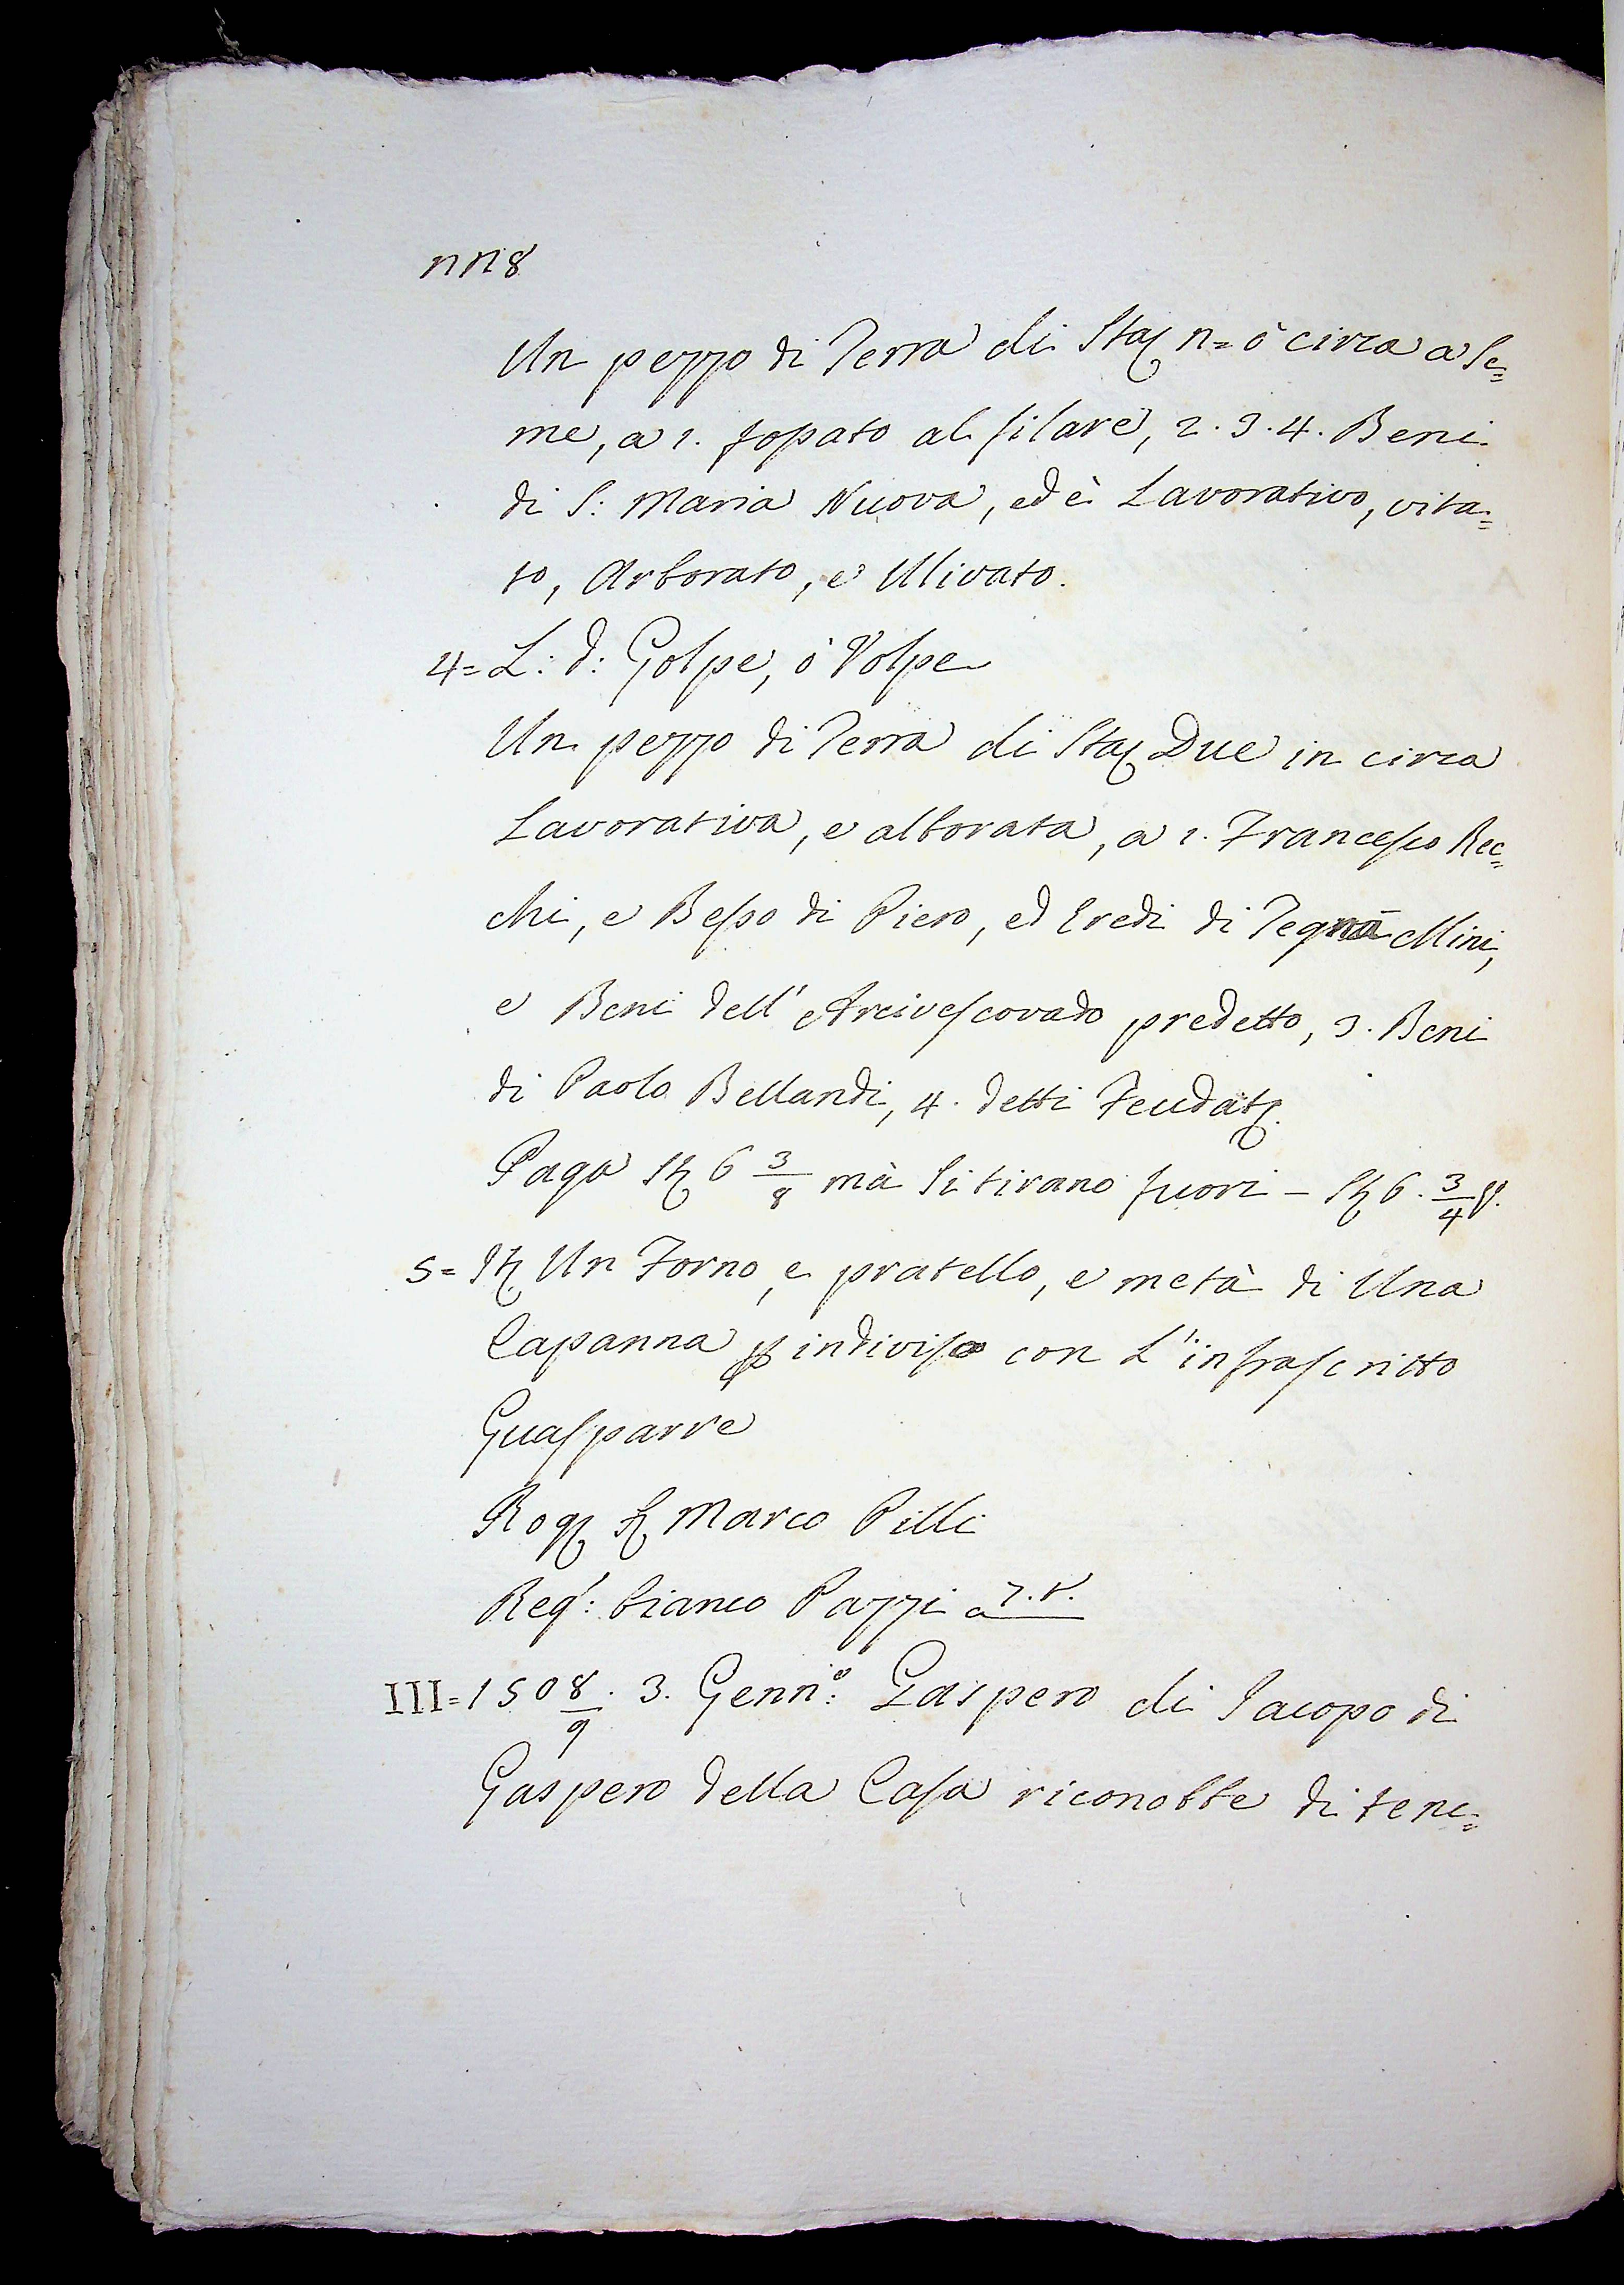 nn8
Un pezzo di Terra di Staj n=ò circa a Se=
me, a 1. fossato al filare, 2. 3. 4. Beni
di S: Maria Nuova, ed è Lavorativo, vita=
to, Arborato, e Ulivato.
4= L: d: Golpe, ò Volpe
Un pezzo di Terra di Staj Due in circa
Lavorativa, e alborata, a 1. Francesco Rec=
chi, e Besso di Piero, ed Eredi di Tegna Mini,
e Beni dell' Arcivescovado predetto, 3. Beni
di Paolo Bellandi, 4. detti Feudatj.
Paga St 6 3/8 mà si tirano fuori - St 6. 3/4
5= It Un Forno, e pratello, e metà di Una
Capanna p indiviso con L'infrascritto
Guasparre
Rog Sr Marco Pilli
Reg: bianco Pazzi a 7.
III= 1508/9. 3. Genn:o Gaspero di Jacopo di
Gaspero della Casa riconobbe di tene=